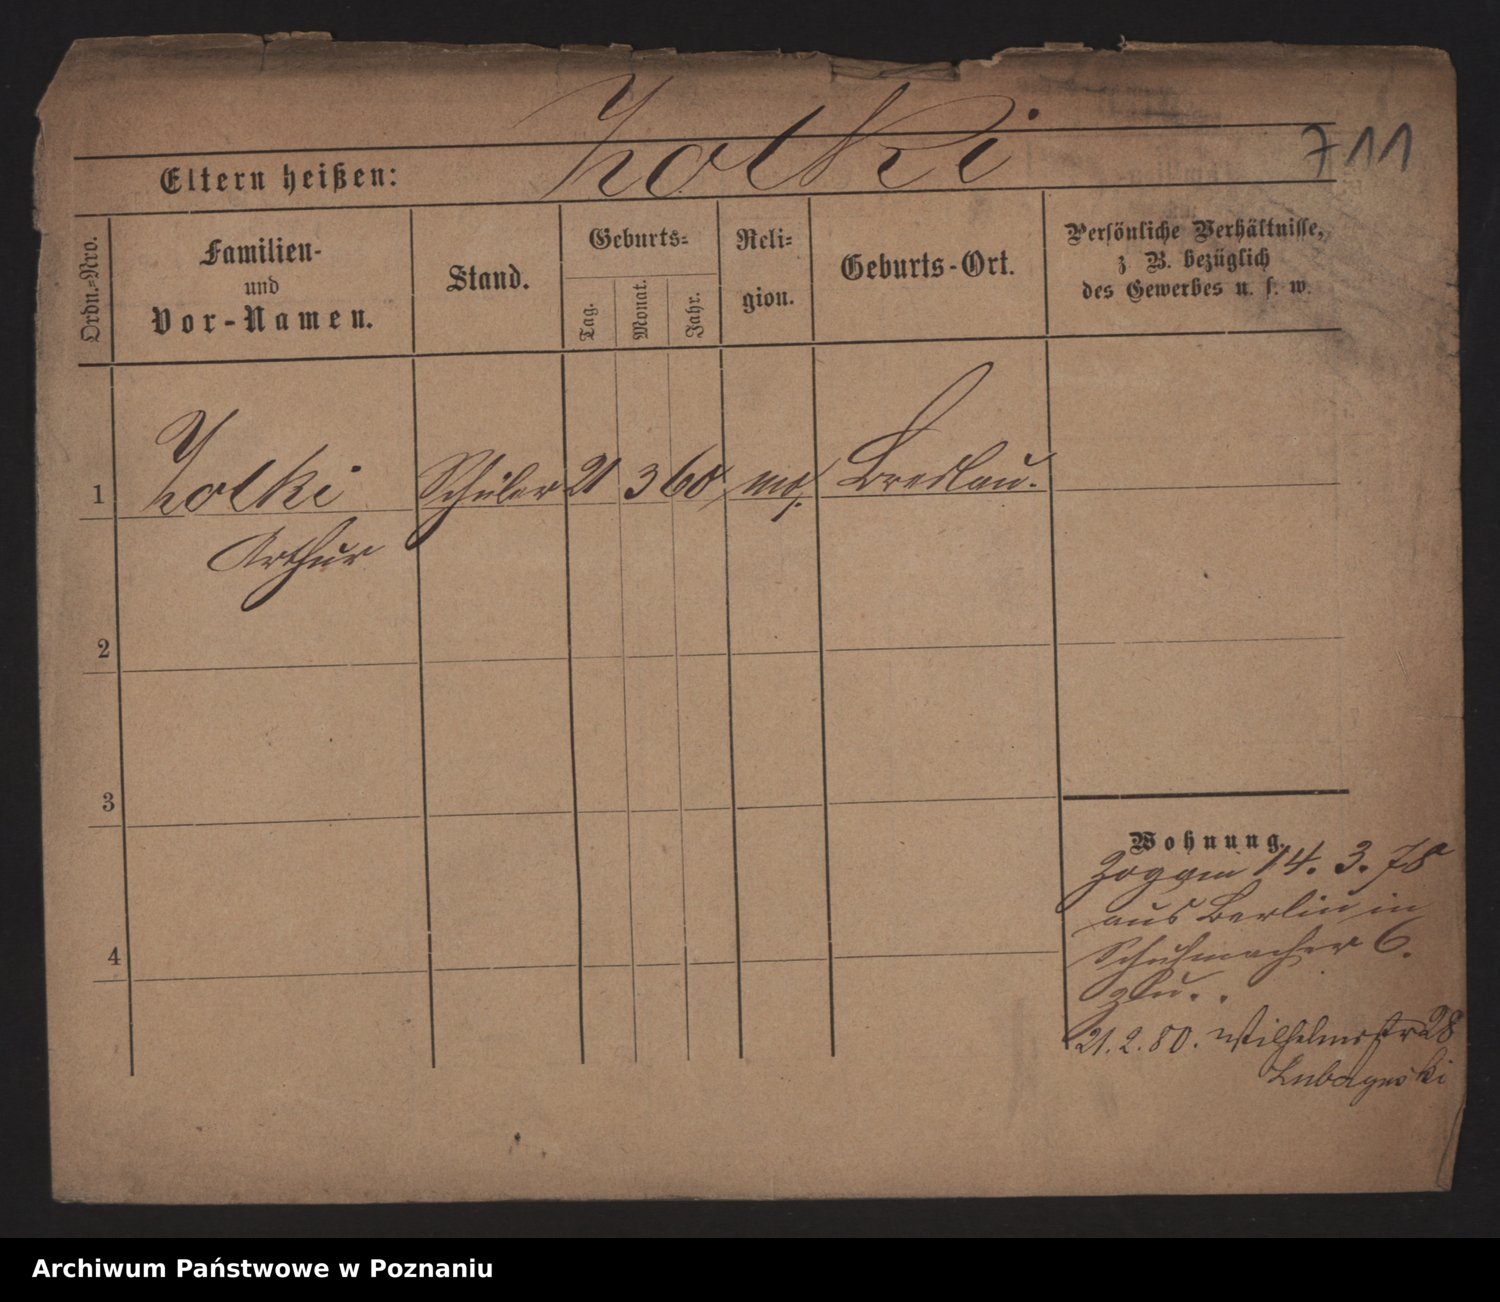 711
Eltern heißen: Zolki
Ordn.-Nro.
Familien-
und
Vor-Namen.
Stand.
Geburts-
Tag.
Monat.
Jahr.
Reli-
gion.
Geburts-Ort.
Persönliche Verhältnisse,
z B. bezüglich
des Gewerbes u. s. w.
1 Zolki Schüler 21 3 60 mos. Breslau.
Arthur
2
3
4
Wohnung.
14. 3. 78
aus Berlin in
Schuhmacher 6.
21. 2. 80. Wilhelmsstr 28